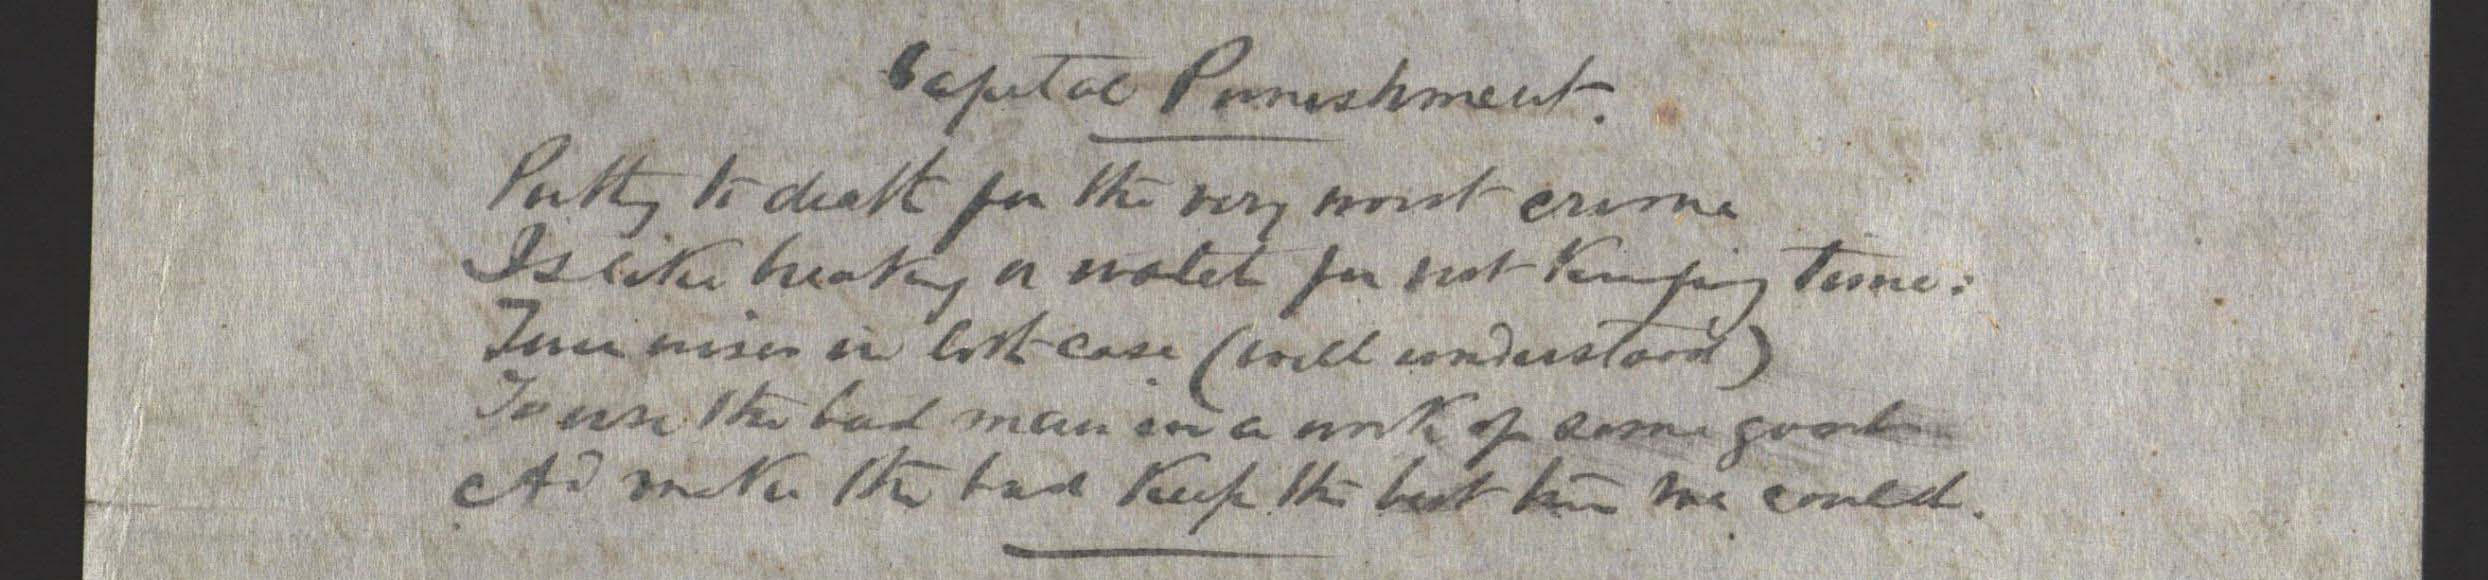 Capital Punishment.
Putting to death for the very worst crime
Is like breaking a watch for not keeping time:
wiser in both case (well understood)
To use the bad man in a work of some good
And make the bad keep the best time we could.